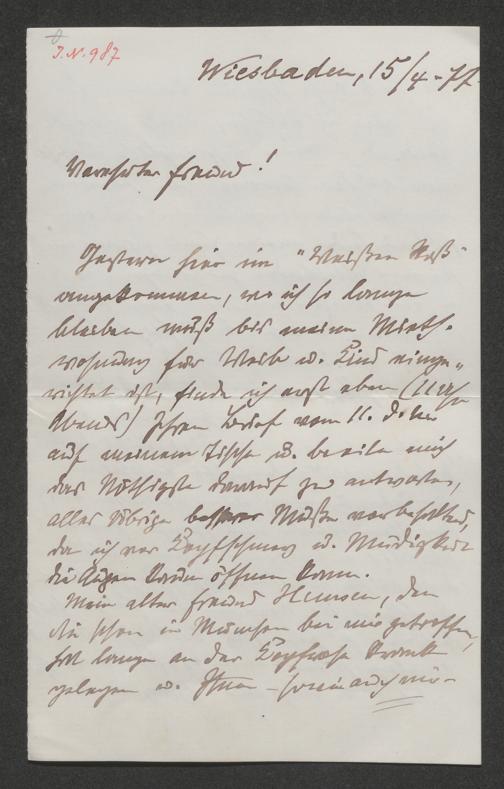 J.N. 987
Wiesbaden, 15/4 - 77.
Verehrter Freund!
Gestern hier im "Weißen Roß"
angekommen, wo ich so lange
bleiben muß bis meine Mieth-
wohnung für Weib u. Kind einge-
richtet ist, finde ich erst eben (11 Uhr
Abends) Ihren Brief vom 11. d.
auf meinem Tische u. beeile mich
das Nöthigste darauf zu antworten,
alles Übrige besserer Muße vorbehaltend,
da ich vor Kopfschmerz u. Müdigkeit
die Augen kaum öffnen kann.
Mein alter Freund, den
Sie schon in München bei mir getroffen,
hat lange an der krank
gelegen u. Ihnen - wie auch mir -